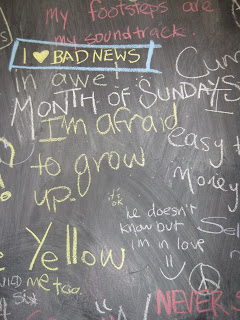 my footsteps are
my soundtrack.
I ♥ BAD NEWS
in awe
MONTH OF SUNDAYS
I'm afraid
to grow
up.
easy t
money
it's
ok
he doesn't
know but
im in love
Yellow
me too.
NEVER S